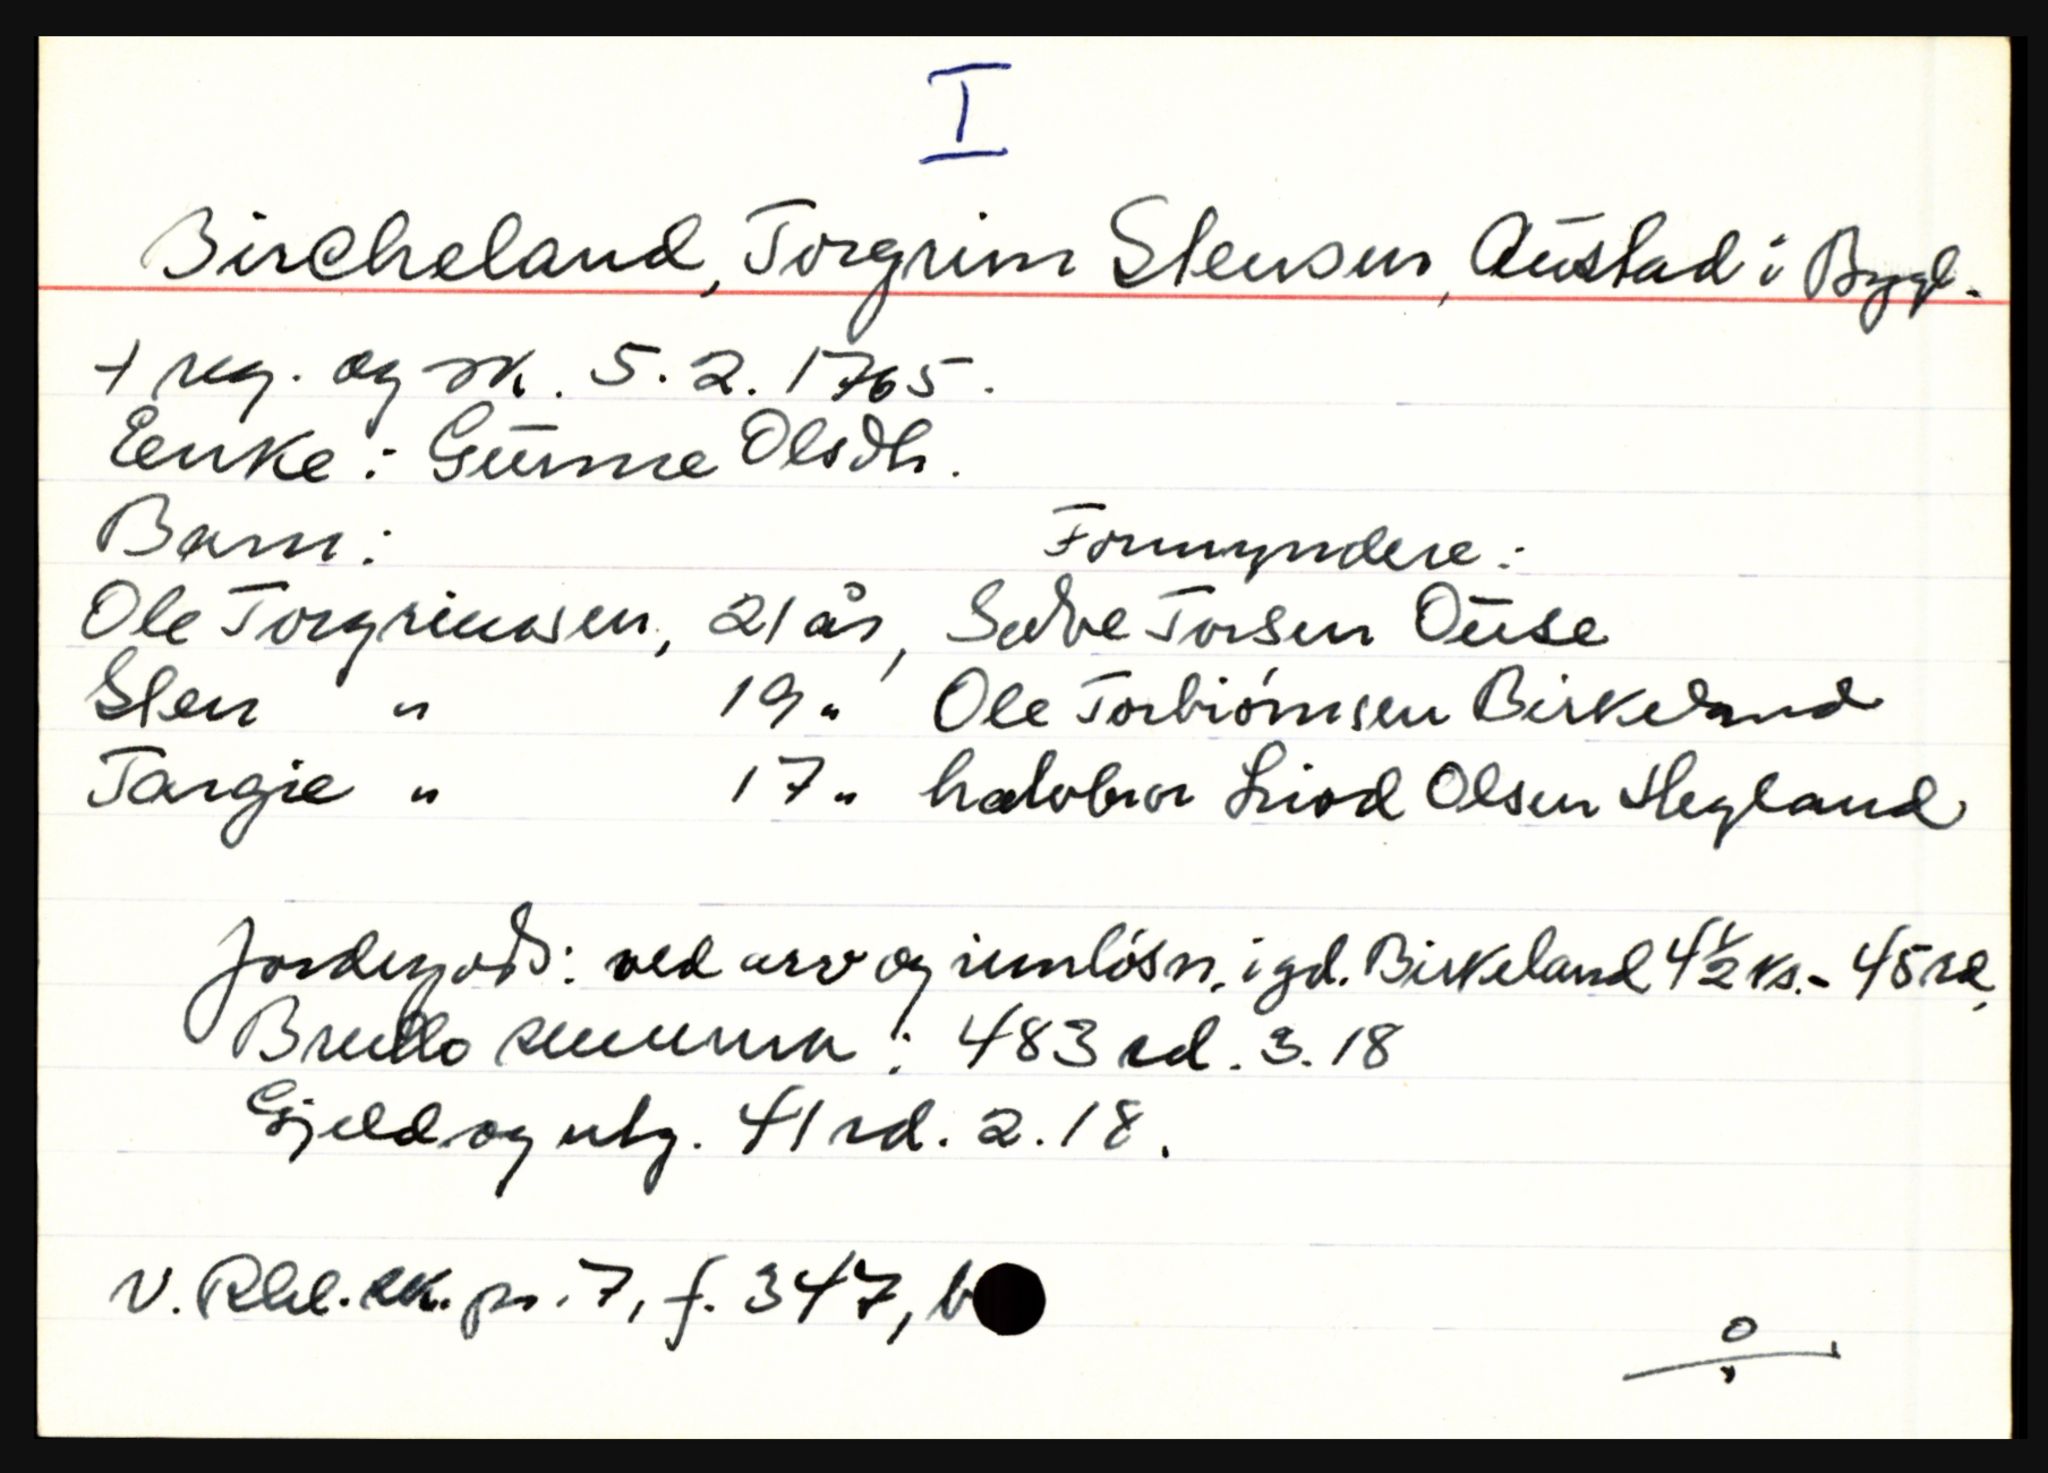 I
Bircheland, Torgrim Stensen, Austad i Bygl.
+ reg. og sk. 5. 2. 1765.
Eenke: Gunne Olsdtr.
Barn: Formyndere:
Ole Torgrimsen, 21 år, Salve Torsen Ouse
Sten " 19 " Ole Torbiörnsen Birkeland
Targie " 17 " halvbror Liod Olsen Hegland
Jordegods: ved arv og innlösn. i gd. Birkeland 4 1/2 ks. - 45 rd.
Brutto summa: 483 rd. 3. 18
Gjeld og utg. 41 rd. 2. 18.
V. Rbl. sk. pr. 7, f. 347, b